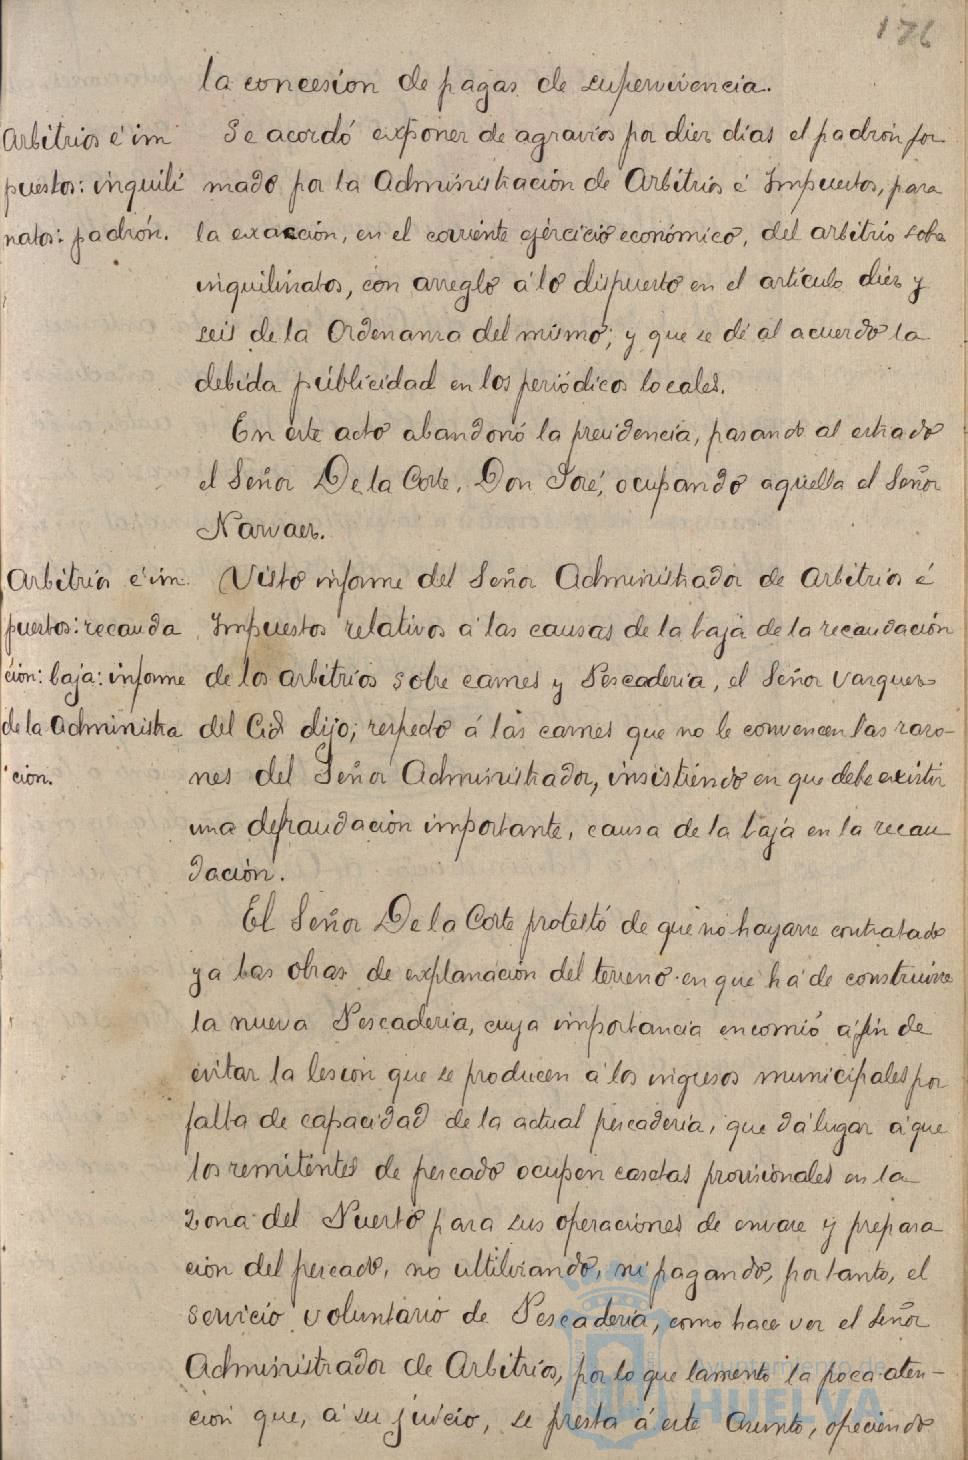 176
la concesión de pagas de supervivencia.
Arbitrios é im
puestos: inquili
natos: padrón.
Se acordó exponer de agravios por diez días el padrón for
mado por la Administración de Arbitrios é Impuestos, para
la exacción, en el corriente ejercicio económico, del arbitrio sobre
inquilinatos, con arreglo á lo dispuesto en el artículo diez y
seis de la Ordenanza del mismo; y que se dé al acuerdo la
debida publicidad en los periódicos locales.
En este acto abandonó la presidencia, pasando al estrado
el Señor De la Corte, Don José, ocupando aquella el Señor
Narvaez.
Arbitrios é im
puestos: recauda
ción: baja: informe
de la Administra
cion.
Visto informe del Señor Administrador de Arbitrios é
Impuestos relativos á las causas de la baja de la recaudación
de los arbitrios sobre carnes y Pescaderia, el Señor Vazquez
del Cid dijo; respecto á las carnes que no le convencen las razo-
nes del Señor Administrador, insistiendo en que debe existir
una defraudación importante, causa de la baja en la recau
dación.
El Señor De la Corte protestó de que no hayanse contratado
ya las obras de explanación del terreno en que há de construirse
la nueva Pescaderia, cuya importancia encomió á fin de
evitar la lesion que se producen á los ingresos municipales por
falta de capacidad de la actual pescadería, que dá lugar á que
los remitentes de pescado ocupen casetas provisionales en la
zona del Puerto para sus operaciones de envase y prepara
cion del pescado, no utilizando, ni pagando, por tanto, el
servicio voluntario de Pescaderia, como hace ver el Señor
Administrador de Arbitrios, por lo que lamentó la poca aten-
ción que, á su juicio, se presta á este asunto, ofreciendo
Ayuntamiento de
HUELVA